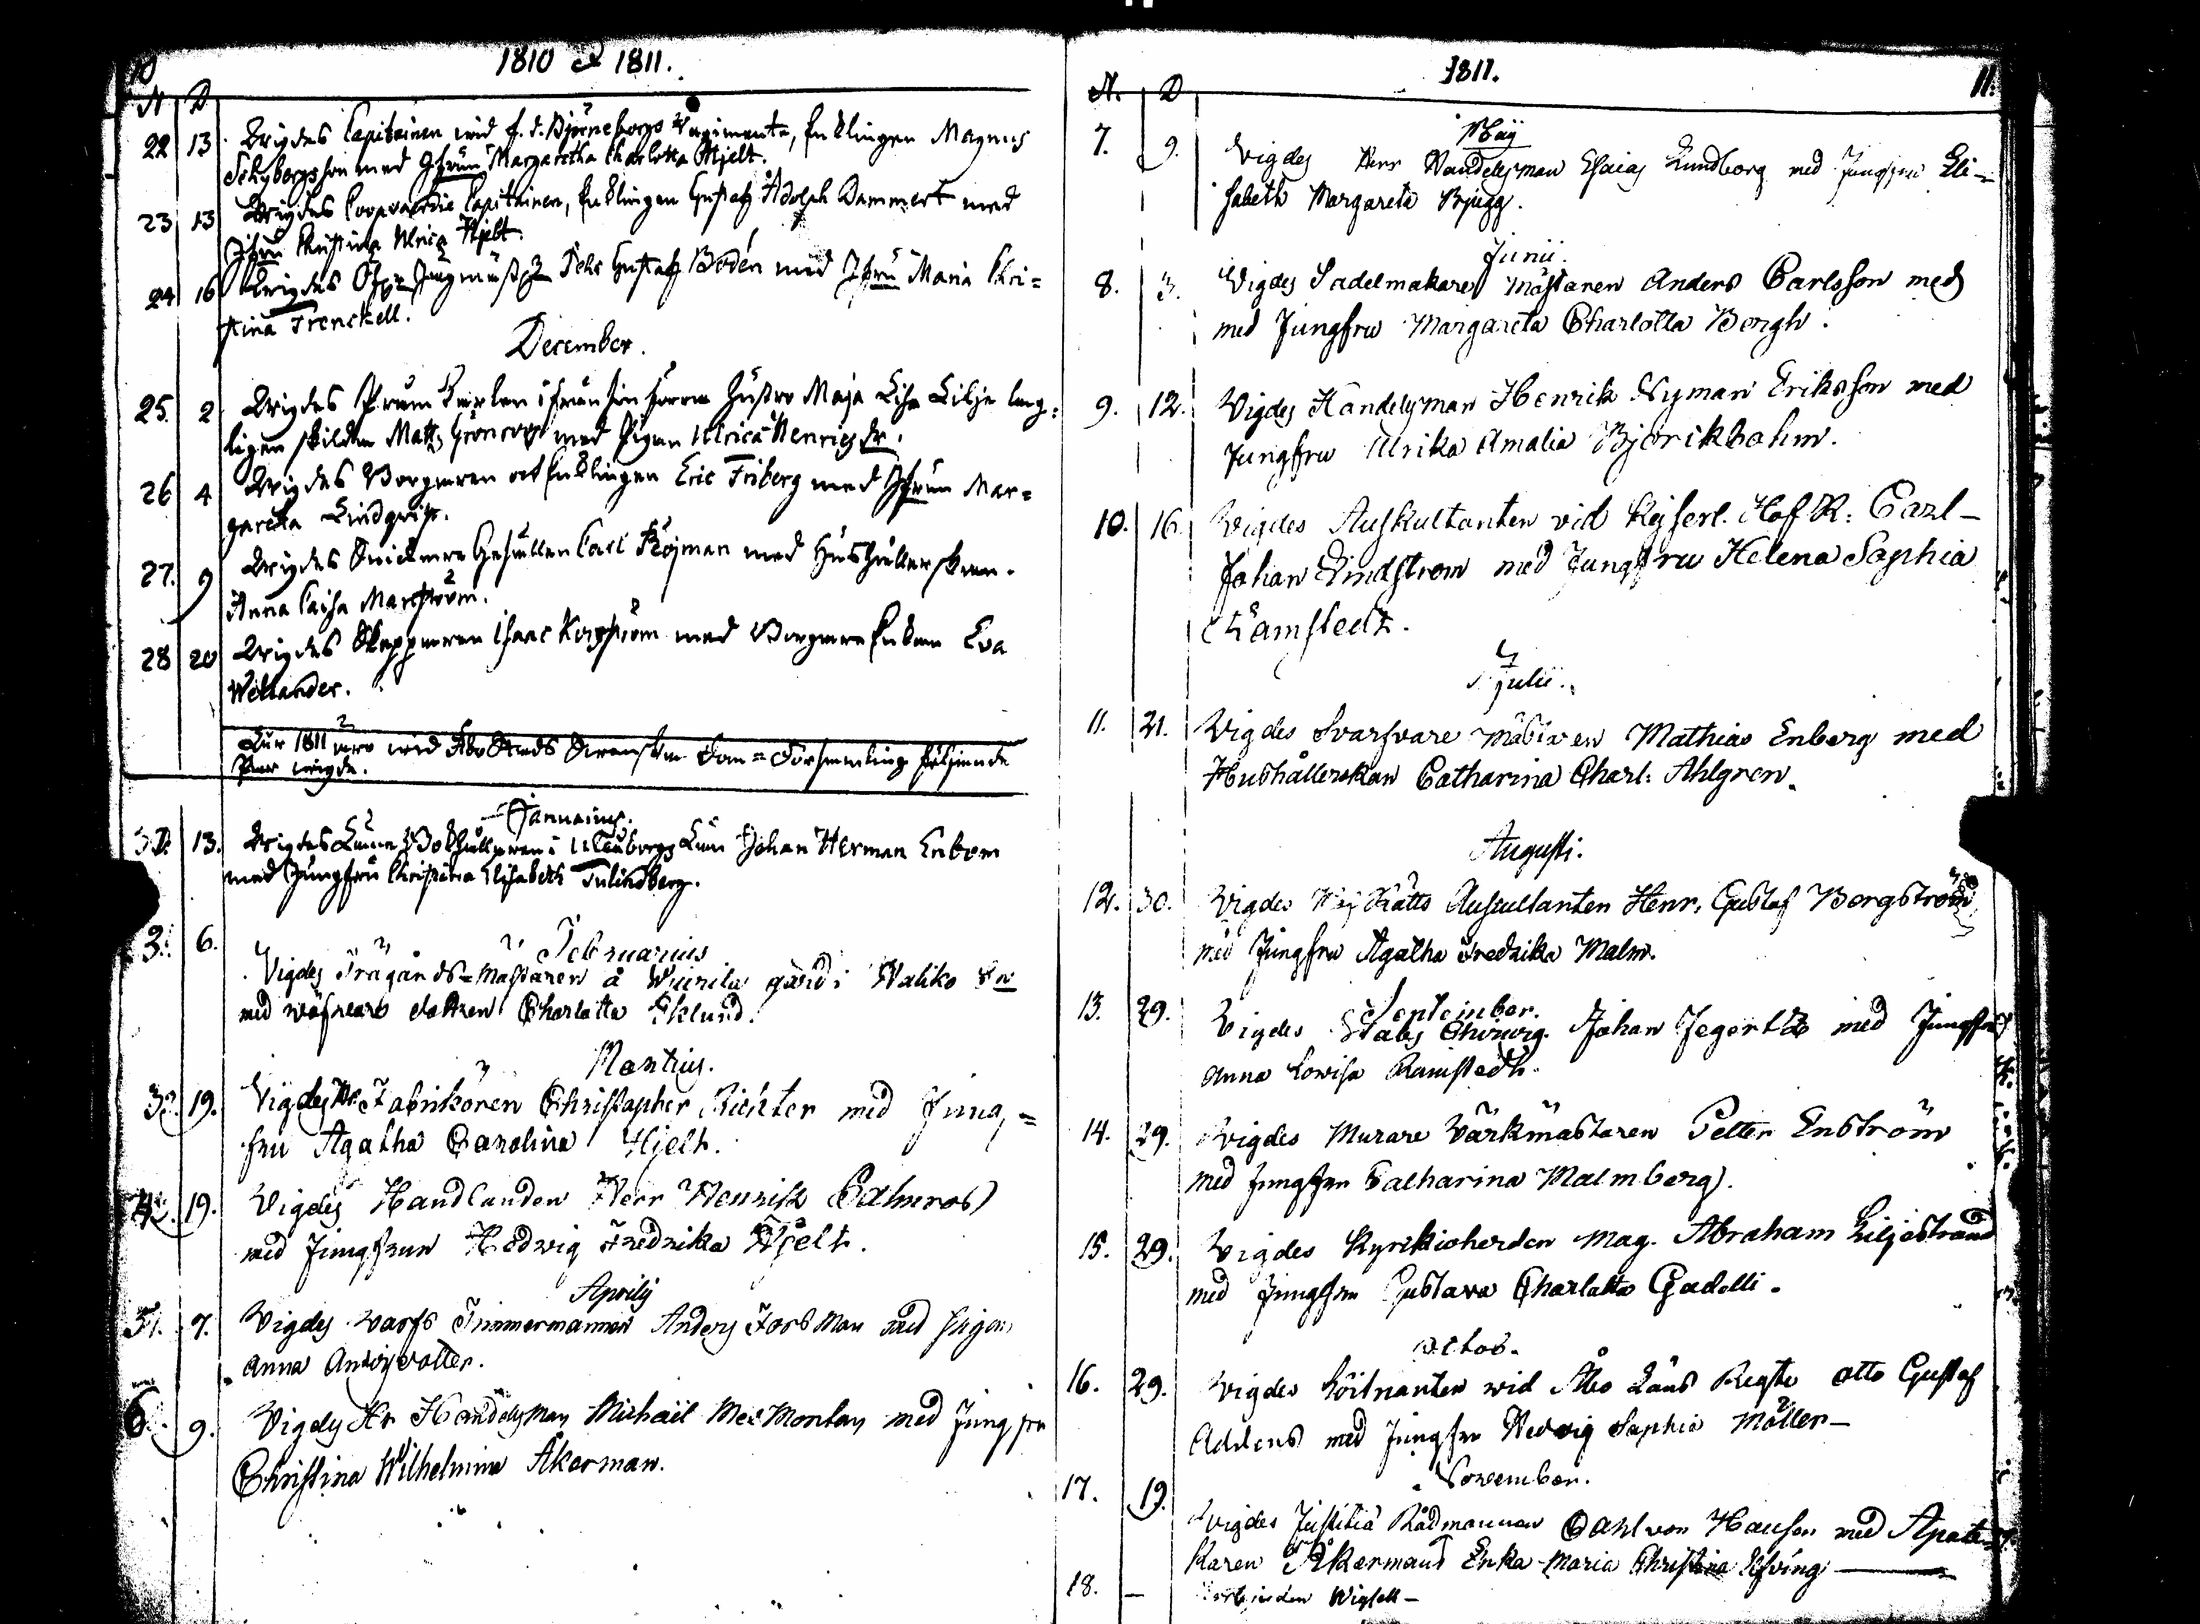 10
1810 & 1811.
N D
22 13. Wigdes Capitainen wid f. d. Björneborgs Regimente, Enklingen Magnus
Schybergsson med Jgfrun Margaretha Charlotta Hjelt.
23 13 Wigdes Coopvaerdie Capitainen, Enklingen Gustaf Adolph Dammert med
Jfru Christina Ulrica Hjelt.
24 16 Wigdes Gustaf Bodén med Jfru Maria Chri=
stina Frenckell.
December.
25 2 Wigdes ifrån sin förra Hustru Maja Lisa Lilja lag=
ligen skilden Matts Grönroos med Pigan Ulrica Henrics dr.
26 4 Wigdes Borgaren och Enklingen Eric Friberg med Jgfrun Mar=
garetha Lindqvist.
27. 9 Wigdes Snickare Gesällen Carl Röjman med Hushållerskan
Anna Caisa Marström.
28 20 Wigdes Skepparen Isaac Korsström med Borgare Enkan Eva
Wellander.
År 1811 äro wid Åbo Stads Swenska Dom=Församling följande
Par wigde.
Januarius.
13. Wigdes Läns Bokhållaren i Uleåborgs Län Johan Herman Enbom
med Jungfru Christina Elisabeth Tulindberg.
Februarius
2. 6. Vigdes Trägårds=Mästaren å Wiurila gård i Haliko Sn
med dottren Charlotta Eklund.
Martius.
3. 19. Vigdes Hr Fabrikören Christopher Richter med Jung=
fru Agatha Carolina Hjelt.
4. 19. Vigdes Handlanden Herr Henrik Calmros
med Jungfrun Hedvig Fredrika Hjelt.
Aprilij
5. 7. Vigdes Varfs Timmermannen Anders Forsman med pigan
Anna Andersdotter.
6. 9. Vigdes Hr Handelsman Michail Mec Montan med Jungfru
Christina Wilhelmina Åkerman.
1811. 11.
N. D
Maij
7. 9. Vigdes Herr Handelsman Esaias Lundborg med Jungfru Eli=
sabeth Margareta Bjugg.
Junii.
8. 3. Vigdes Sadelmakare Mästaren Anders Carlsson med
med Jungfru Margareta Charlotta Bergh.
9. 12. Vigdes Handelsman Henrik Nyman Eriksson med
Jungfru Ulrika Amalia Björkbohm.
10. 16. Vigdes Auskultanten vid Kejserl. Hof R: Carl
Johan Lindstrom med Jungfru Helena Sophia
Ramstedt.
Julii.
11. 21. Vigdes Svarfvare Mästaren Mathias Enberg med
Hushållerskan Catharina Charl: Ahlgren.
Augusti.
12. 30. Vigdes Rätts Auscultanten Henr. Gustaf Bergström
med Jungfru Agatha Fredrika Malm.
September.
13. 29. Vigdes Stabs Chirurg. Johan Jegertz med Jungfru
Anna Lowisa Ramstedt.
14. 29. Vigdes Murare Värkmästaren Petter Enström
med Jungfru Catharina Malmberg.
15. 29. Vigdes Kyrkioherden Mag. Abraham Liljestrand
med Jungfru Gustava Charlotta Gadolli.
Octob.
16. 29. Vigdes Löitnanten wid Åbo Läns Regte Otto Gustaf
Addens med Jungfru Hedvig Sophia Möller
November.
17. 19. Vigdes Justitiæ Rådmannen Carl von Hausen med Apote=
karen Åkermans Enka Maria Christina Elfving
18. Wigsell